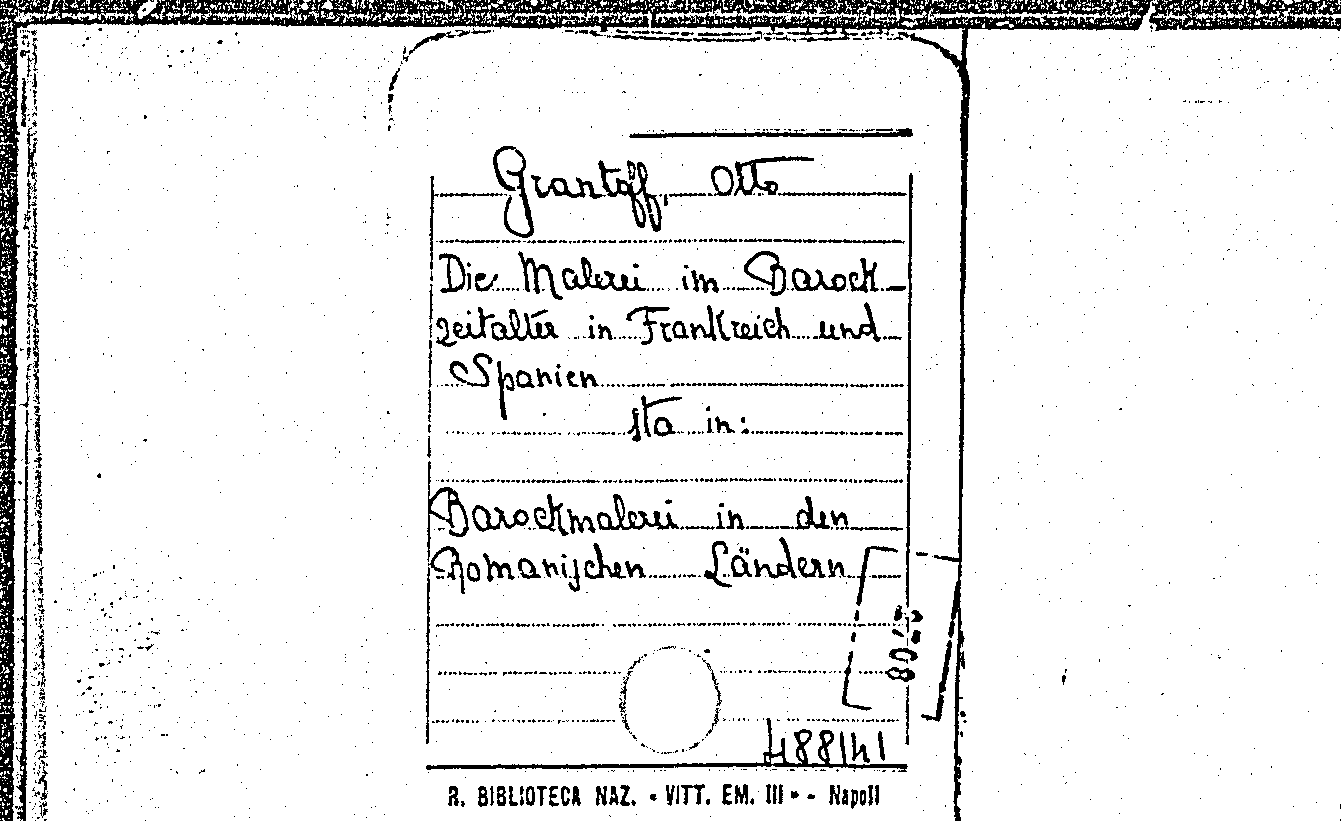 Grantoff, Otto
Die Malerei im Barock-
zeitalter in Frankreich und
Spanien
sta in:
Barockmalerei in den
Romanischen Ländern
R. BIBLIOTECA NAZ. « VITT. EM. III » - Napoli